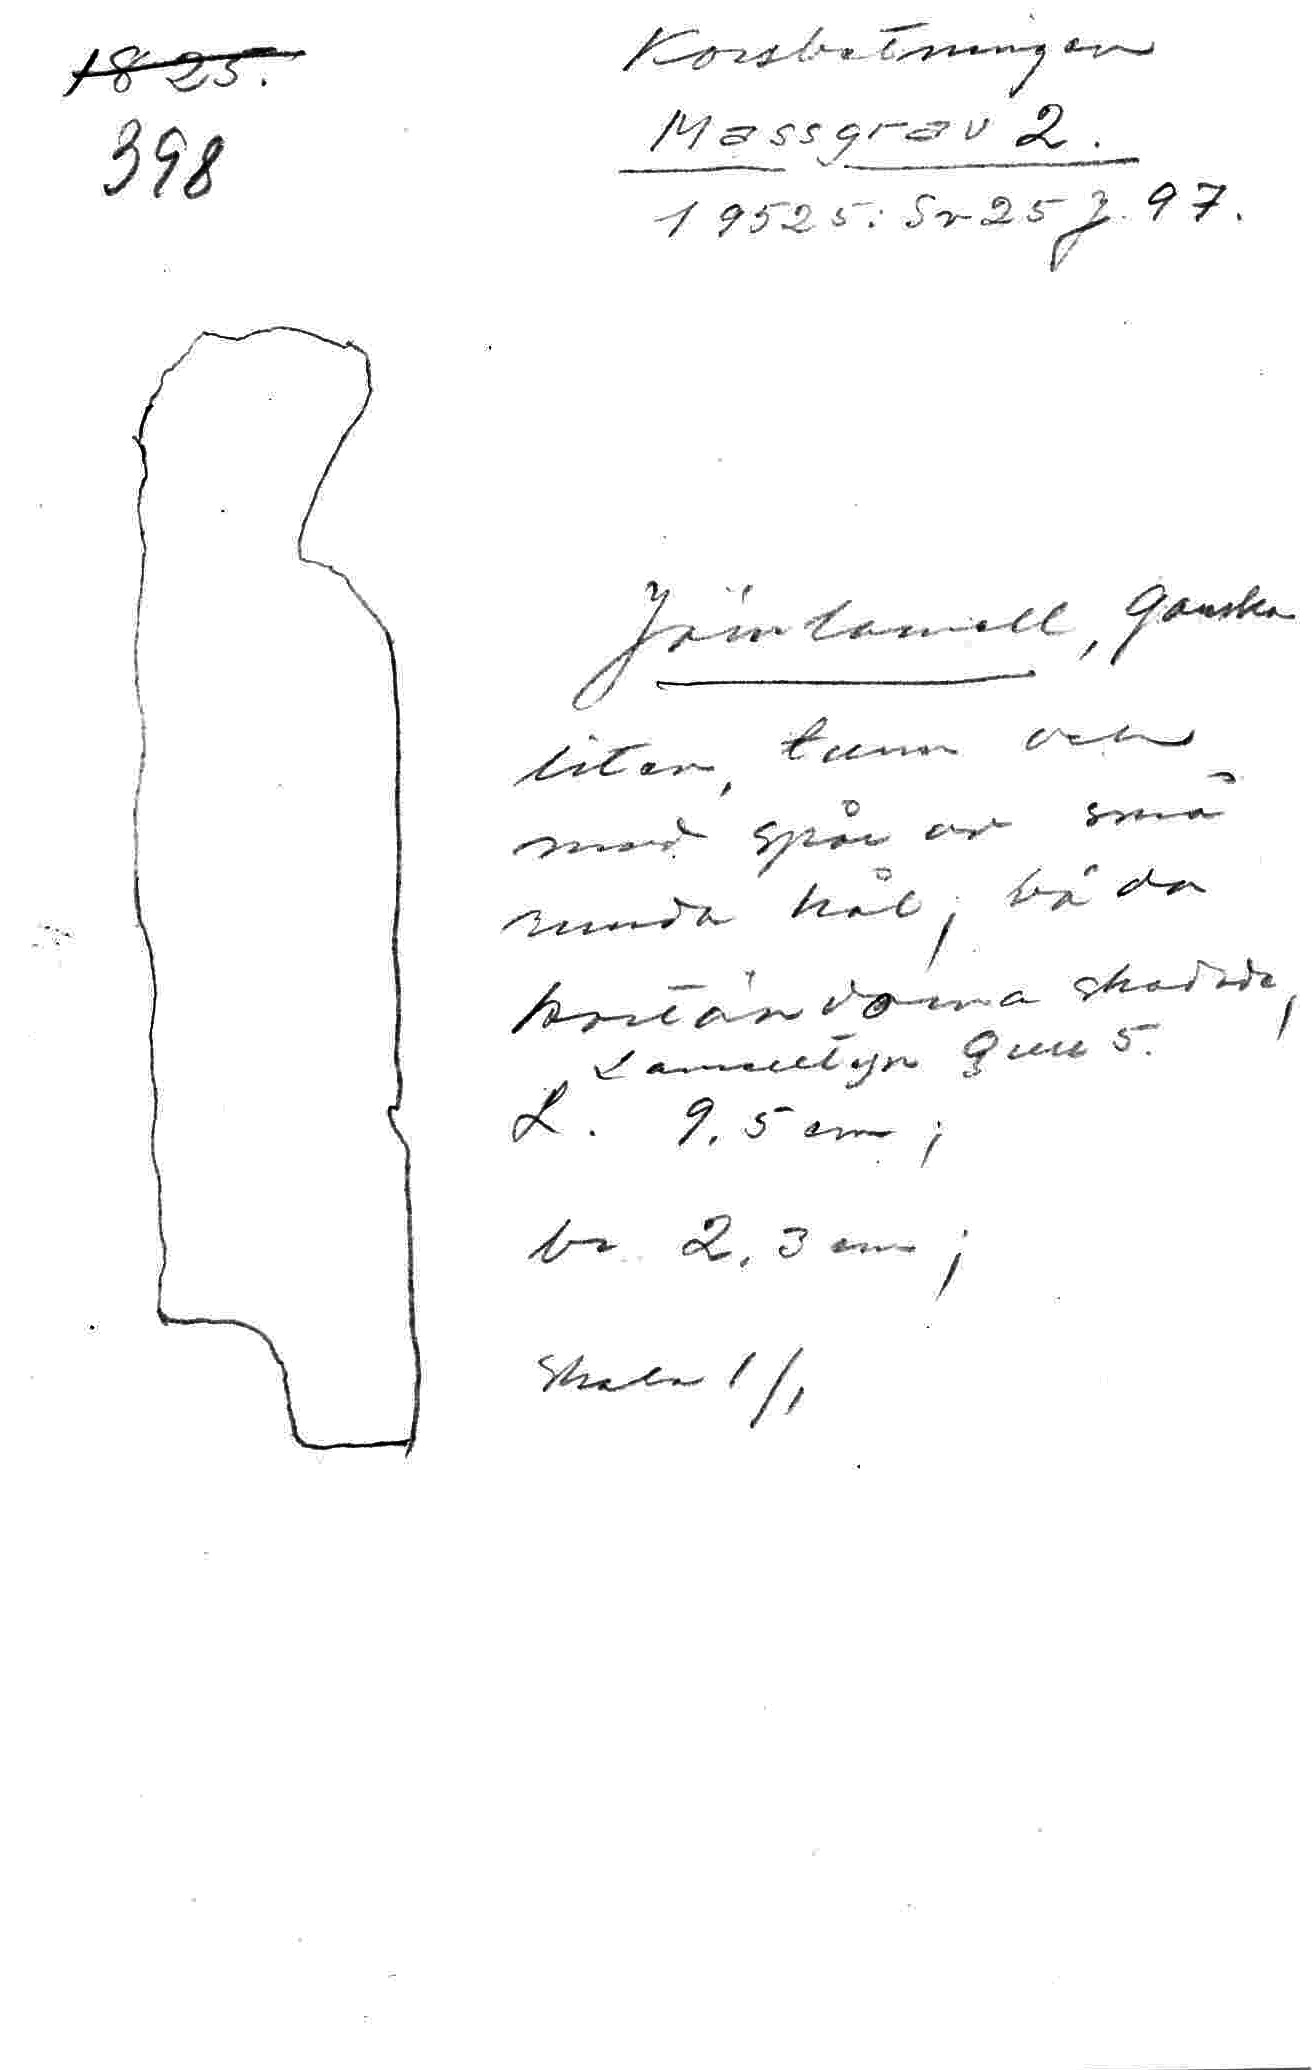 1825.
398
Korsbetningen
Massgrav 2.
19525: Sr 25 J. 97.
Järnlamell, ganska
liten, tunn och
med spår av små
runda hål; båda
kortändorna skadade,
Lamelltyp 5.
L. 9,5 cm;
br 2,3 cm;
Skala 1/1